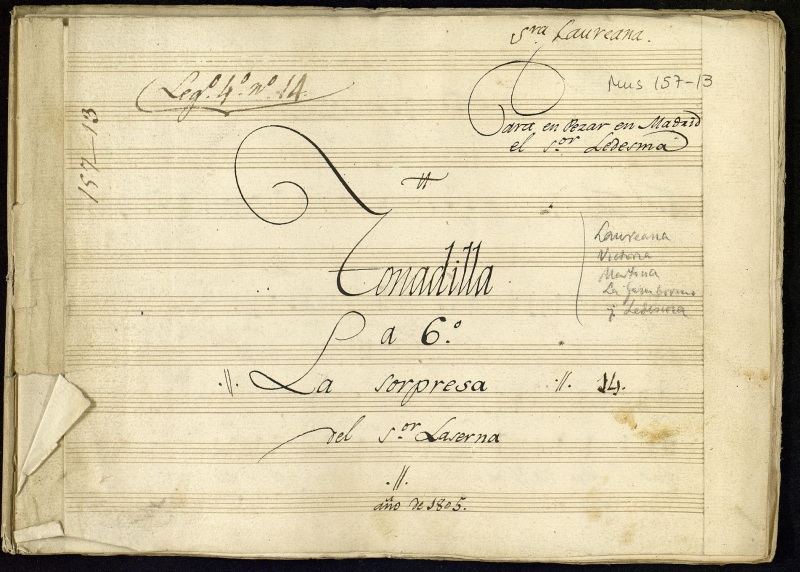 Sra Laureana.
Legº. 4º. nº. 14.
Mus 157-13
Para enpezar en Madrid
el sor Ledesma
157-13
Tonadilla
a 6.º
La sorpresa
14.
del s.or Laserna
año de 1805.
Laureana
Victoria
Martina
La
y Ledesma